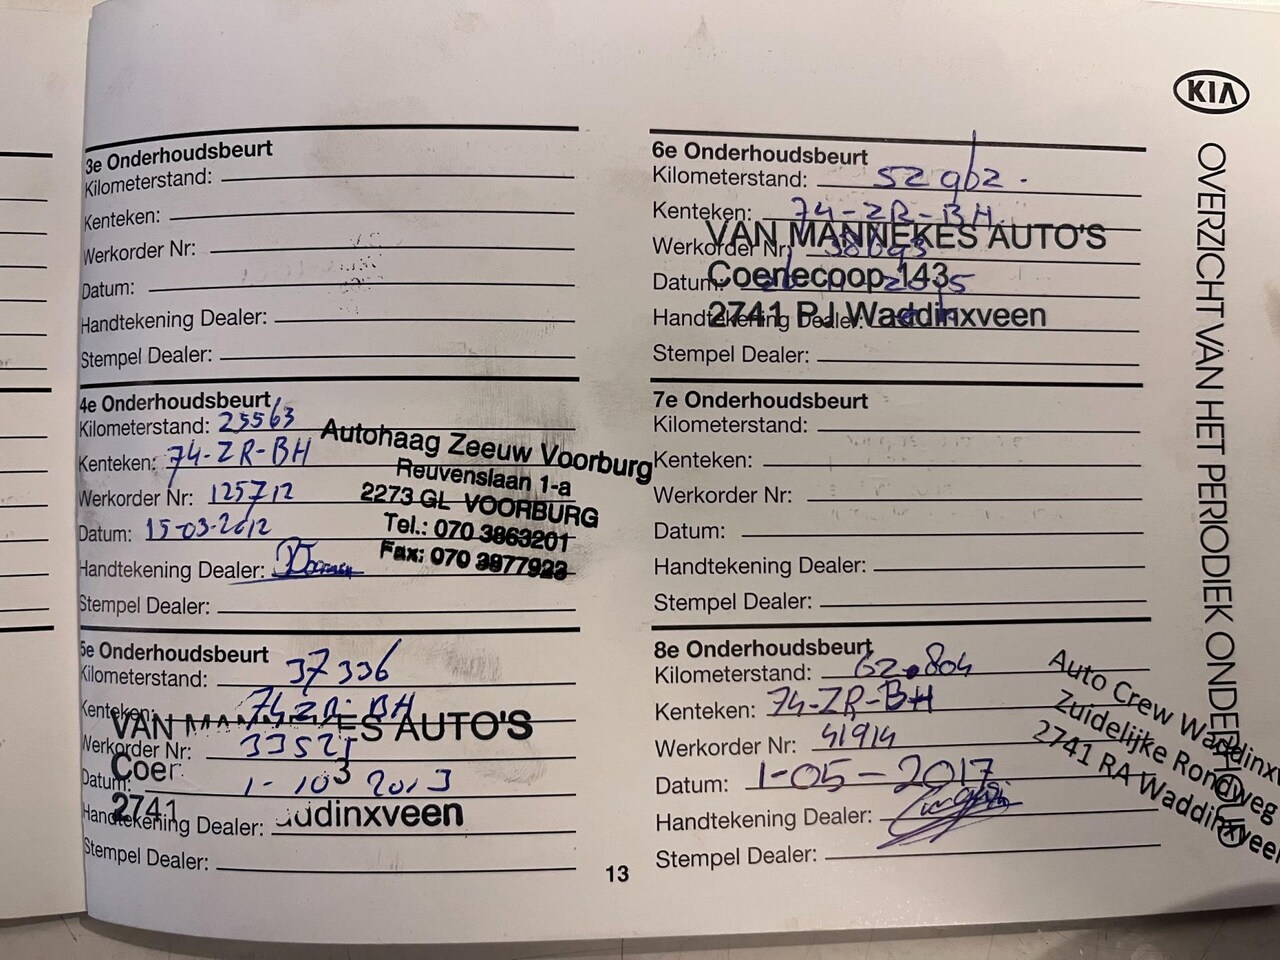 3e Onderhoudsbeurt
Kilometerstand:
Kenteken:
Werkorder Nr:
Datum:
Handtekening Dealer:
Stempel Dealer:
4e Onderhoudsbeurt
Kilometerstand: 25563
Kenteken: 74-ZR-BH
Werkorder Nr: 125712
Datum: 15-03-2012
Handtekening Dealer:
Stempel Dealer:
Autohaag Zeeuw Voorburg
Reuvenslaan 1-a
2273 GL VOORBURG
Tel.: 070 3863201
Fax: 070 3877923
5e Onderhoudsbeurt
Kilometerstand: 37336
Kenteken: 74-ZR-BH
Werkorder Nr:
Datum: 1-10 2013
Handtekening Dealer:
Stempel Dealer:
VAN AUTO'S
2741
6e Onderhoudsbeurt
Kilometerstand: 52962.
Kenteken: 74-ZR-BH
Werkorder Nr:
Datum:
Handtekening Dealer:
Stempel Dealer:
VAN MANNEKES AUTO'S
Coenecoop 143
2741 PJ Waddinxveen
7e Onderhoudsbeurt
Kilometerstand:
Kenteken:
Werkorder Nr:
Datum:
Handtekening Dealer:
Stempel Dealer:
8e Onderhoudsbeurt
Kilometerstand: 62.804
Kenteken: 74-ZR-BH
Werkorder Nr: 41914
Datum: 1-05-2017
Handtekening Dealer:
Stempel Dealer:
Auto Crew
Zuidelijke Rondweg
2741 RA Waddinxveen
13
KIA
OVERZICHT VAN HET PERIODIEK